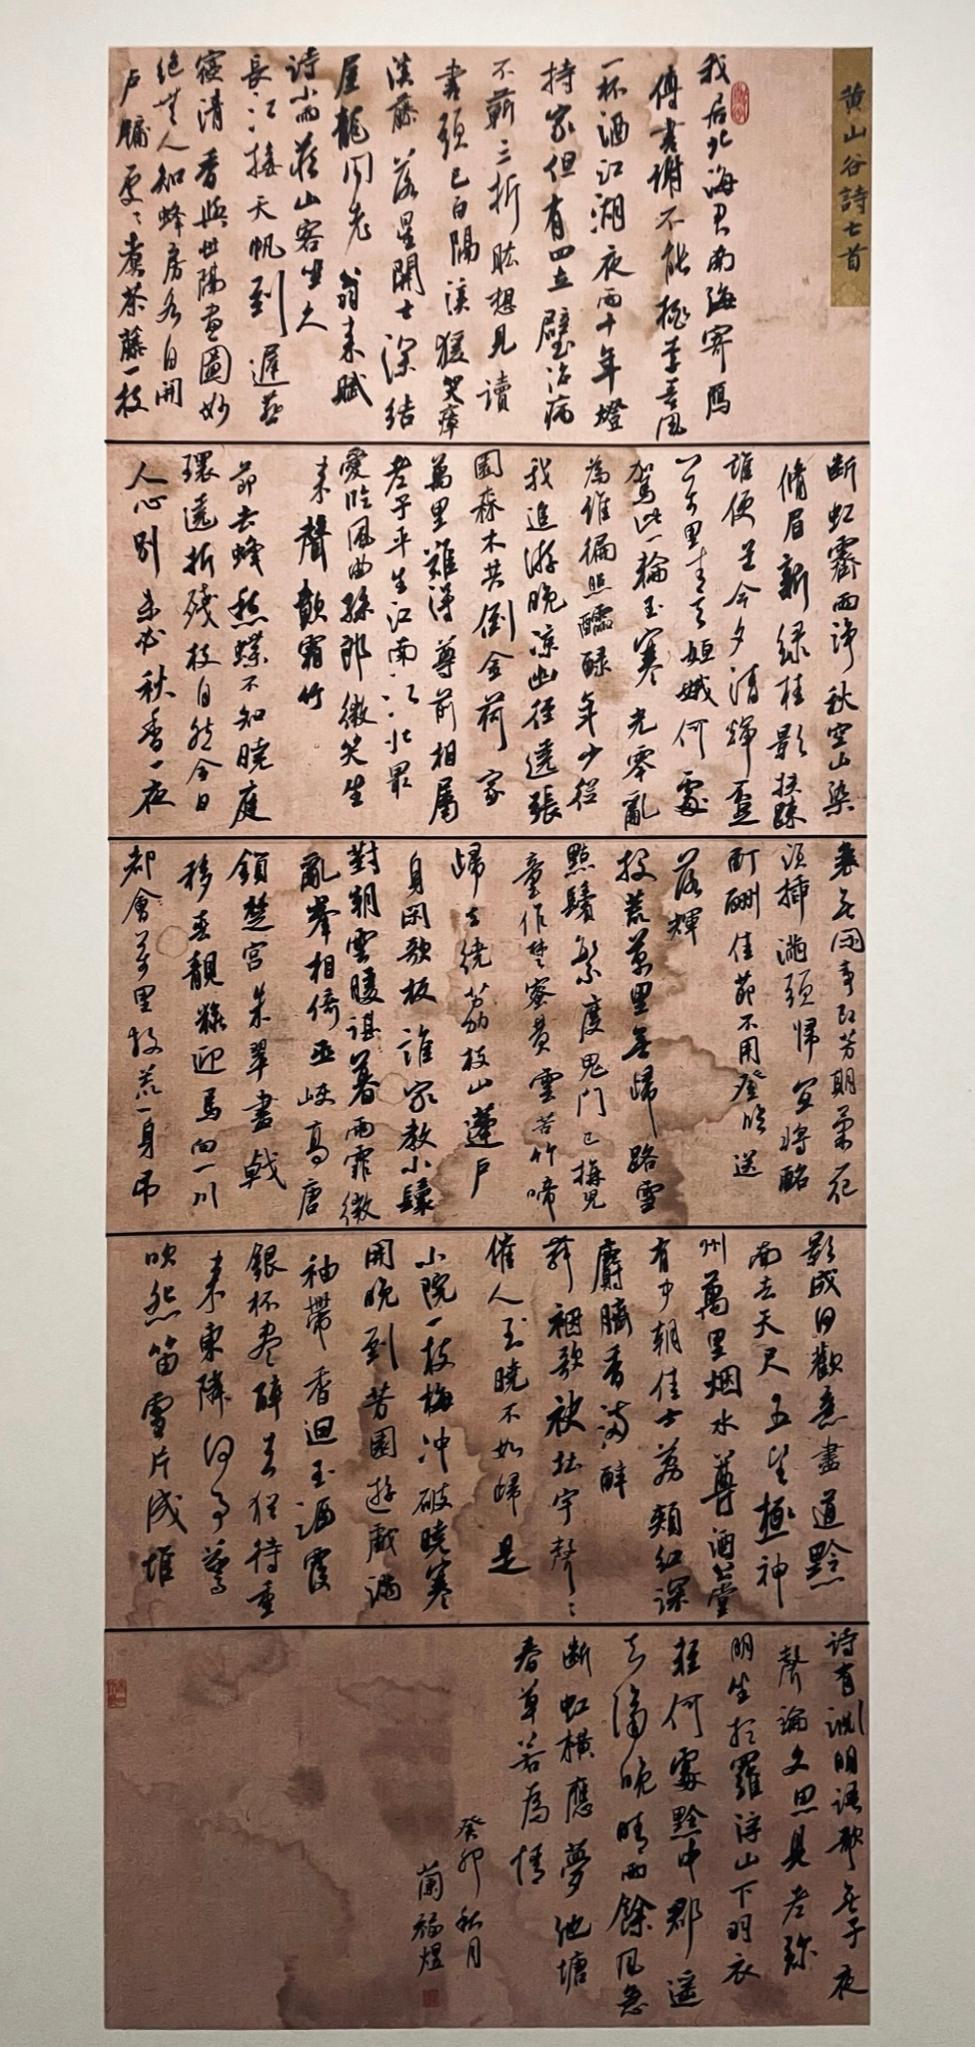 黄山谷詩七首
我居北海君南海寄雁
傳書謝不能桃李春風
一杯酒江湖夜雨十年燈
持家但有四立壁治病
不蘄三折肱想見讀
書頭已白隔溪猿哭瘴
溪藤落星開士深結
屋龍閣老翁来賦
詩小雨藏山客坐久
長江接天帆到遲燕
寢清香與世隔畫圖妙
絶無人知蜂房各自開
户牖處〻煮茶藤一枝
断虹霽雨淨秋空山染
脩眉新緑桂影扶踈
誰便道今夕清輝不足
萬里青天姮娥何處
駕此一輪玉寒光零亂
為誰偏照醽醁年少從
我追游晚凉幽徑遶張
園森木共倒金荷家
萬里難得尊前相屬
老子平生江南江北最
愛臨風曲孫郎微笑坐
来聲歕霜竹
節去蜂愁蝶不知曉庭
環遶折殘枝自然今日
人心别未必秋香一夜
衰無閑事即芳期菊花
須插滿頭歸宜將酩
酊酬佳節不用登臨送
落輝
投荒萬里無歸路雪
點鬢繁度鬼門已拚兒
童作楚蠻莫雲苦竹啼
歸去繞荔枝山蓬户
身閑歌板誰家教小鬟
對朝雲靉䨴暮雨霏微
亂峯相倚巫峽高唐
鎖楚宫朱翠畫戟
移春靚粧迎馬向一川
都會萬里投荒一身弔
影成何歡意盡道黔
南去天尺五望極神
州萬里烟水尊酒公堂
有中朝佳士荔頰紅深
麝臍香滿醉
舞裀歌袂杜宇聲〻
催人到曉不如歸是
小院一枝梅冲破曉寒
開晚到芳園遊戲滿
袖帶香迴玉酒覆
銀杯盡醉去猶待重
来東隣何事驚
吹怨笛雪片成堆
詩有淵明語歌無子夜
聲論文思見老彌
明坐想羅浮山下羽衣
輕何處黔中郡遥
知隔晚晴雨餘風急
断虹横應夢池塘
春草若為情
癸卯秋月
蘭福煜